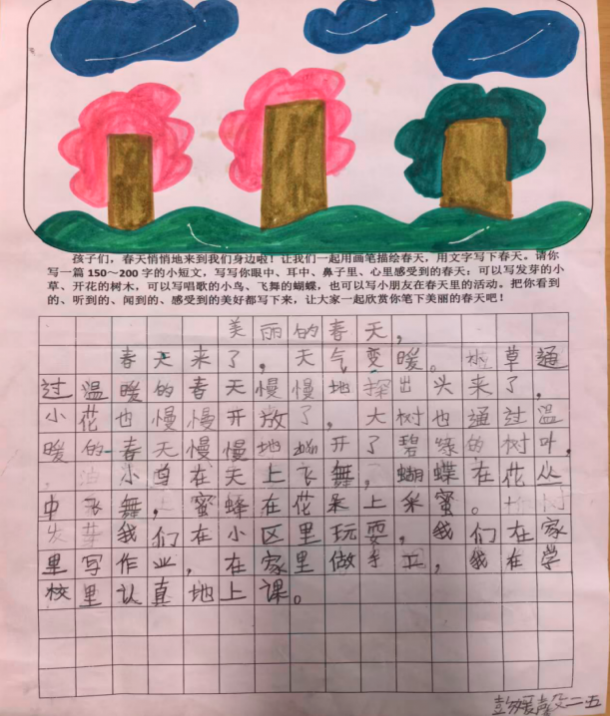 孩子们，春天悄悄地来到我们身边啦！让我们一起用画笔描绘春天，用文字写下春天。请你
写一篇 150～200 字的小短文，写写你眼中、耳中、鼻子里、心里感受到的春天：可以写发芽的小
草、开花的树木，可以写唱歌的小鸟、飞舞的蝴蝶，也可以写小朋友在春天里的活动。把你看到
的、听到的、闻到的、感受到的美好都写下来，让大家一起欣赏你笔下美丽的春天吧！
美丽的春天，
春天来了，天气变暖。草通
过温暖的春天慢慢地探出头来了，
小花也慢慢开放了，大树也通过温
暖的春天慢慢地开了碧绿的树叶，
小鸟在天上飞舞，蝴蝶在花丛
中飞舞，蜜蜂在花朵上采蜜。
发芽我们在小区里玩耍，我们在家
里写作业，在家里做手工，我在学
校里认真地上课。
二五